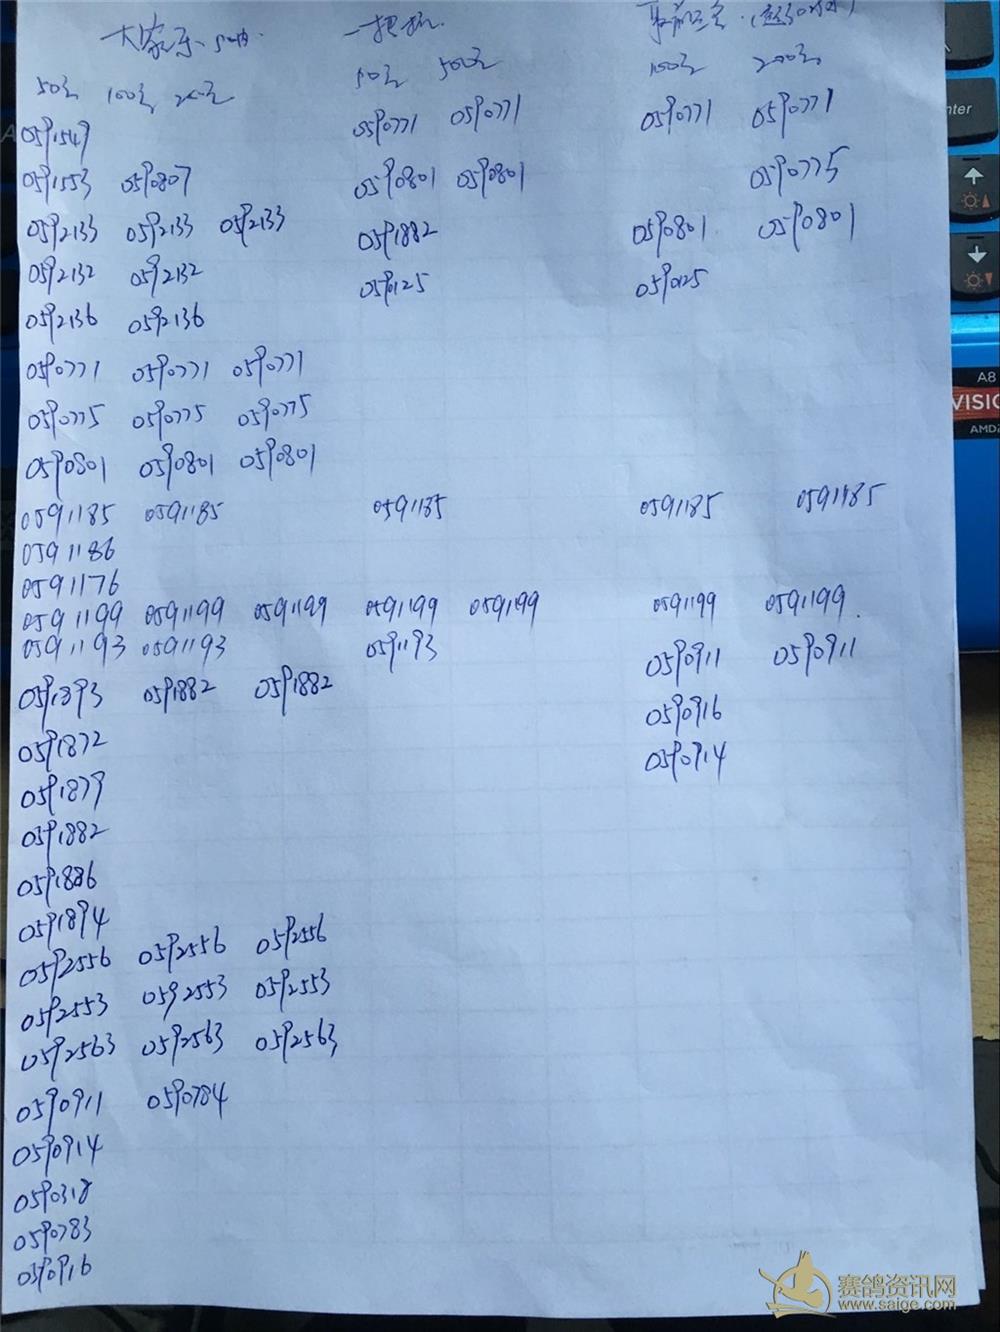 大家乐
50元 100元 200元 50元 500元 100元 200元
0591549 0590771 0590771 0590771 0590771
0591553 0590807 0590801 0590801 0590775
0592133 0592133 0592133 0591882 0590801 0590801
0592132 0592132 0590125 0590125
0592136 0592136
0590771 0590771 0590771
0590775 0590775 0590775
0590801 0590801 0590801
0591185 0591185 0591185 0591185 0591185
0591186
0591176
0591199 0591199 0591199 0591199 0591199 0591199 0591199.
0591193 0591193 0591193 0590911 0590911
0591893 0591882 0591882 0590916
0591872 0590914
0591879
0591882
0591886
0591894
0592556 0592556 0592556
0592553 0592553 0592553
0592563 0592563 0592563
0590911 0590784
0590914
0590318
0590783
0590916
A8
VISIO
AMD
nter
赛鸽资讯网
www.saige.com